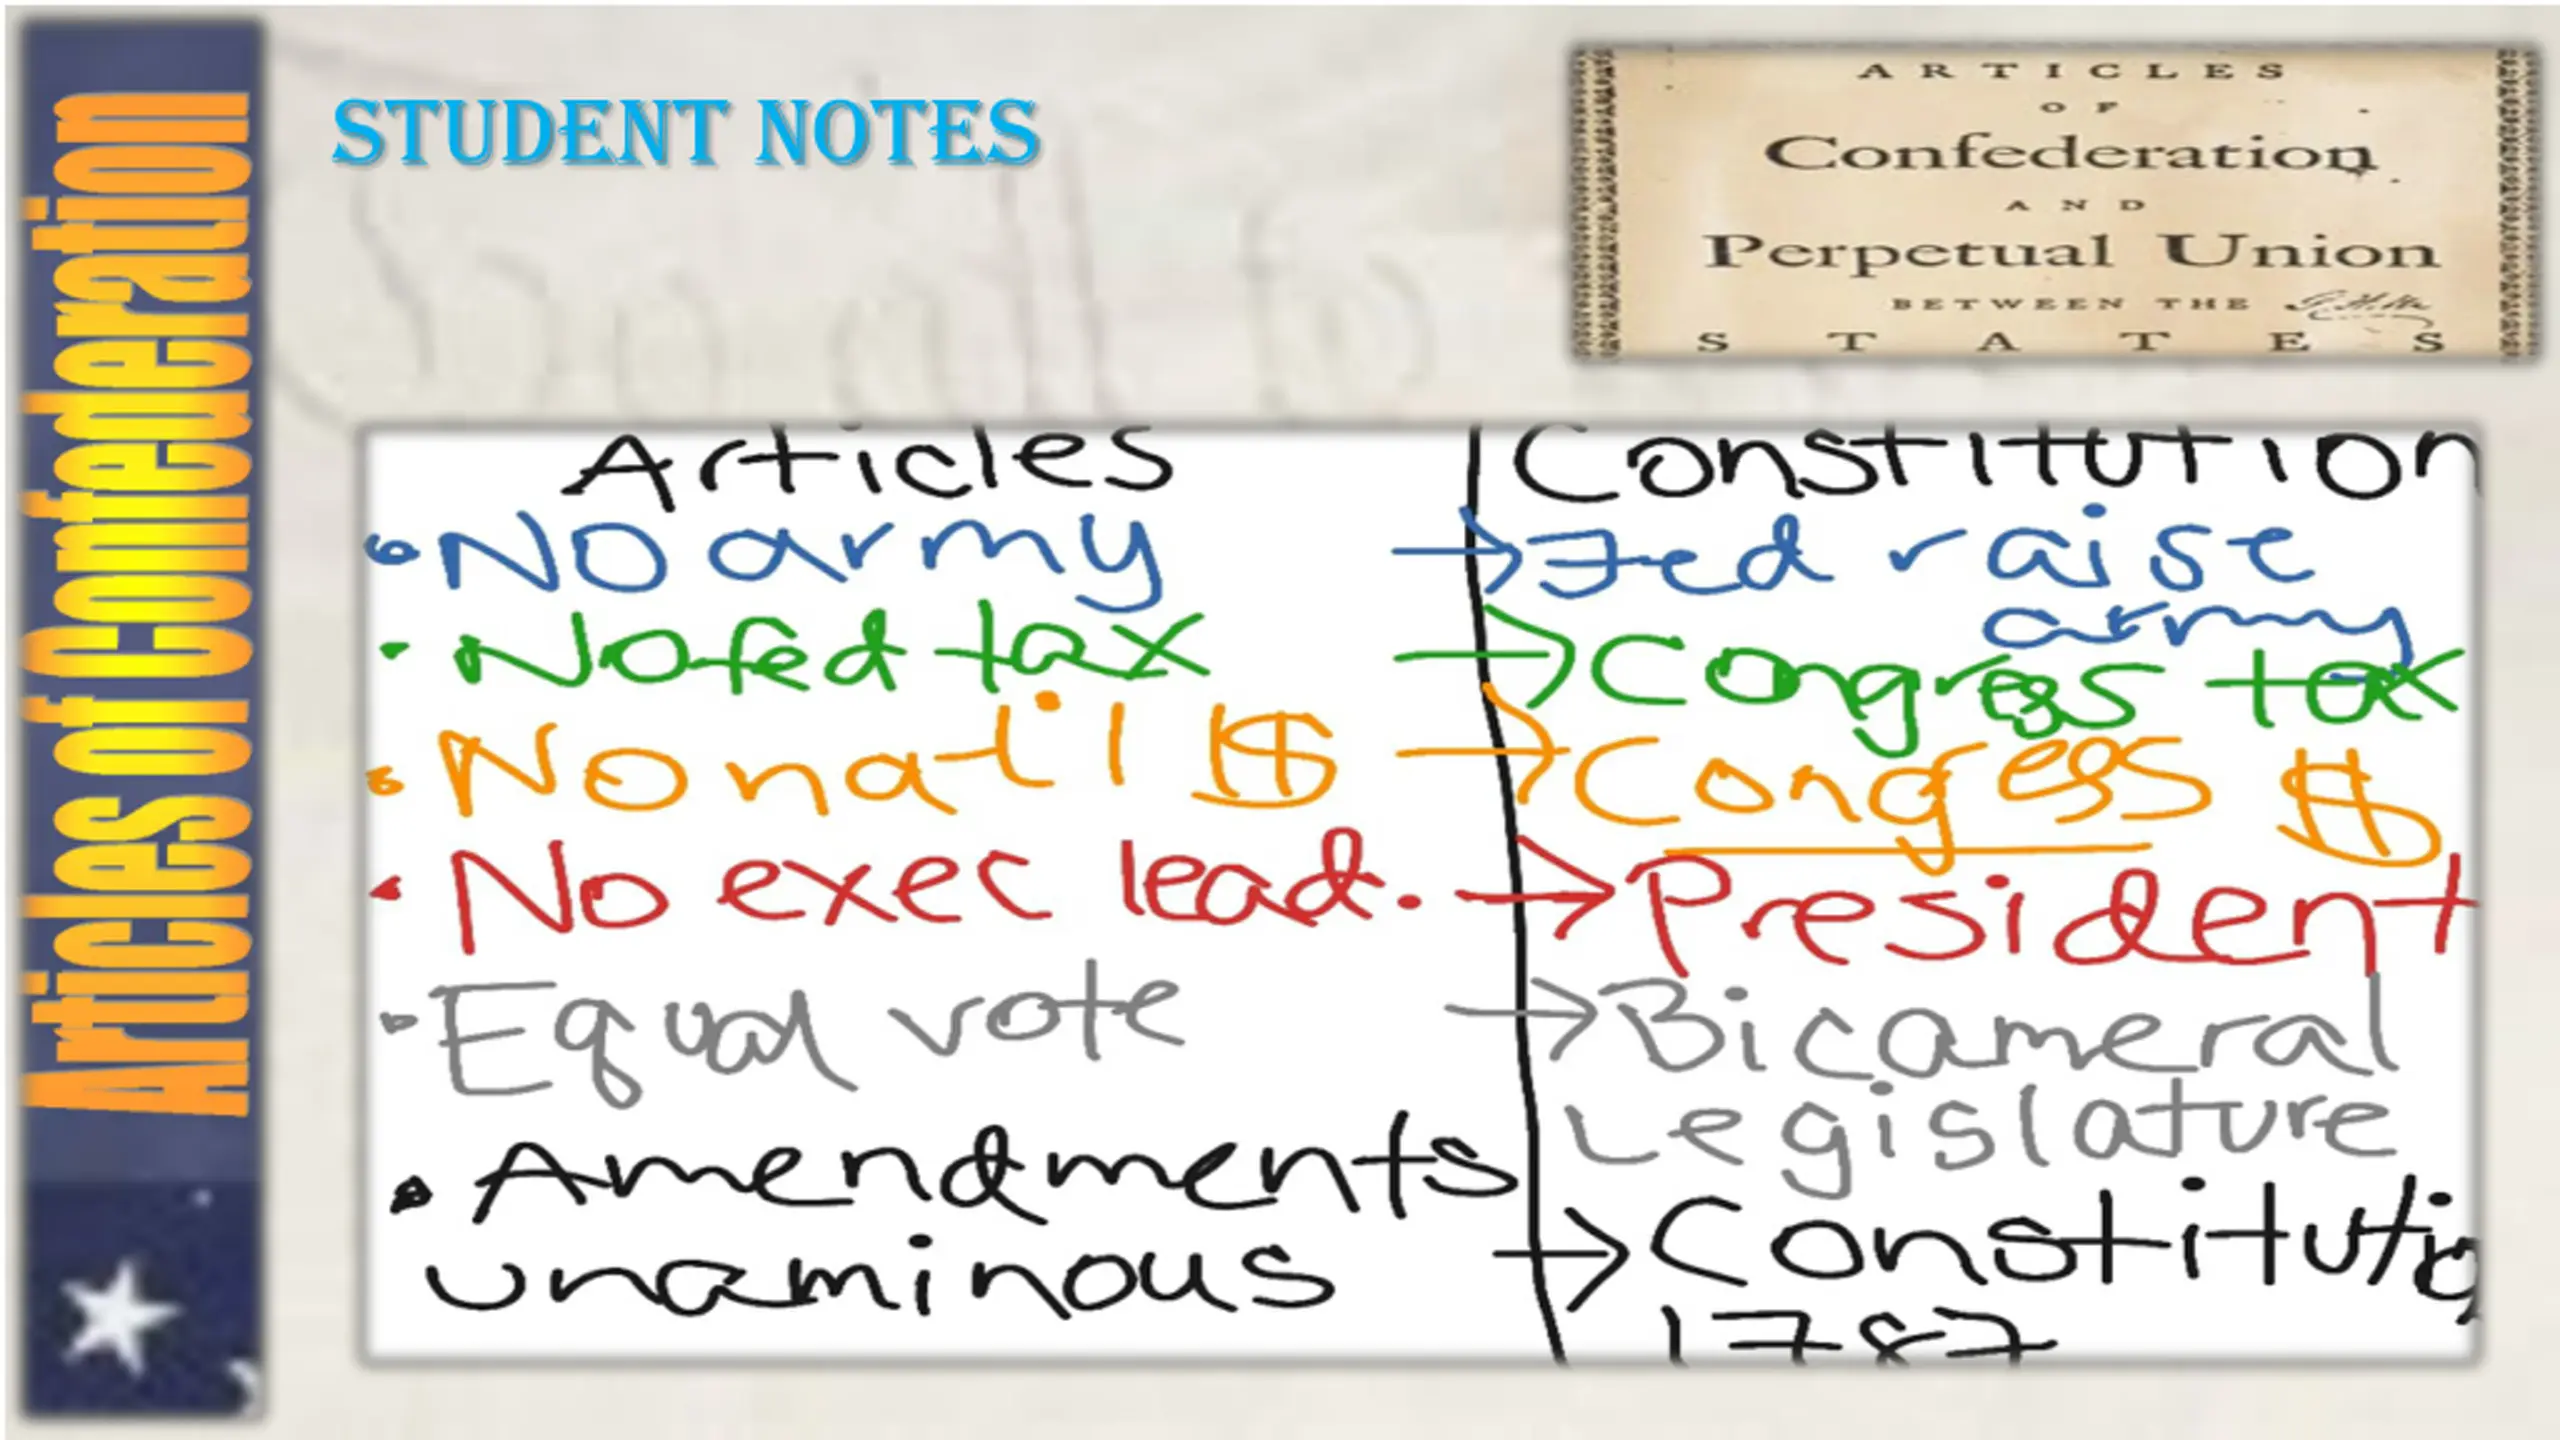 Articles of Confederation
STUDENT NOTES
ARTICLES
OF
Confederation
AND
Perpetual Union
BETWEEN THE
STATES
Articles
Constitution
• No army
→ Fed raise
army
• No fed tax
→ Congress tax
• No nat'l $
→ Congress $
• No exec lead.
→ President
• Equal vote
→ Bicameral
Legislature
• Amendments
unaminous
→ Constitutio
1787